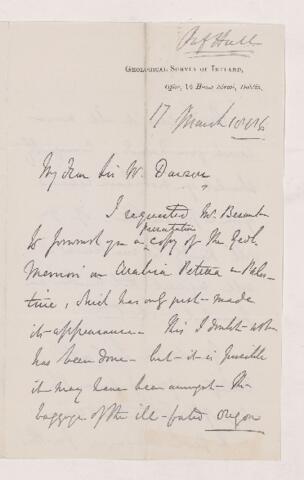 Prof Hull
GEOLOGICAL SURVEY OF IRELAND,
Office, 14 Hume Street, Dublin.
17 March 1886
My Dear Sir W. Dawson,
I requested Mr. Besant
to forward you a presentation copy of the Geol.
Memoir on Arabia Petræa & Pales-
tine, which has only just made
its appearance. This I doubt not
has been done - but it is possible
it may have been amongst the
baggage of the ill-fated Oregon